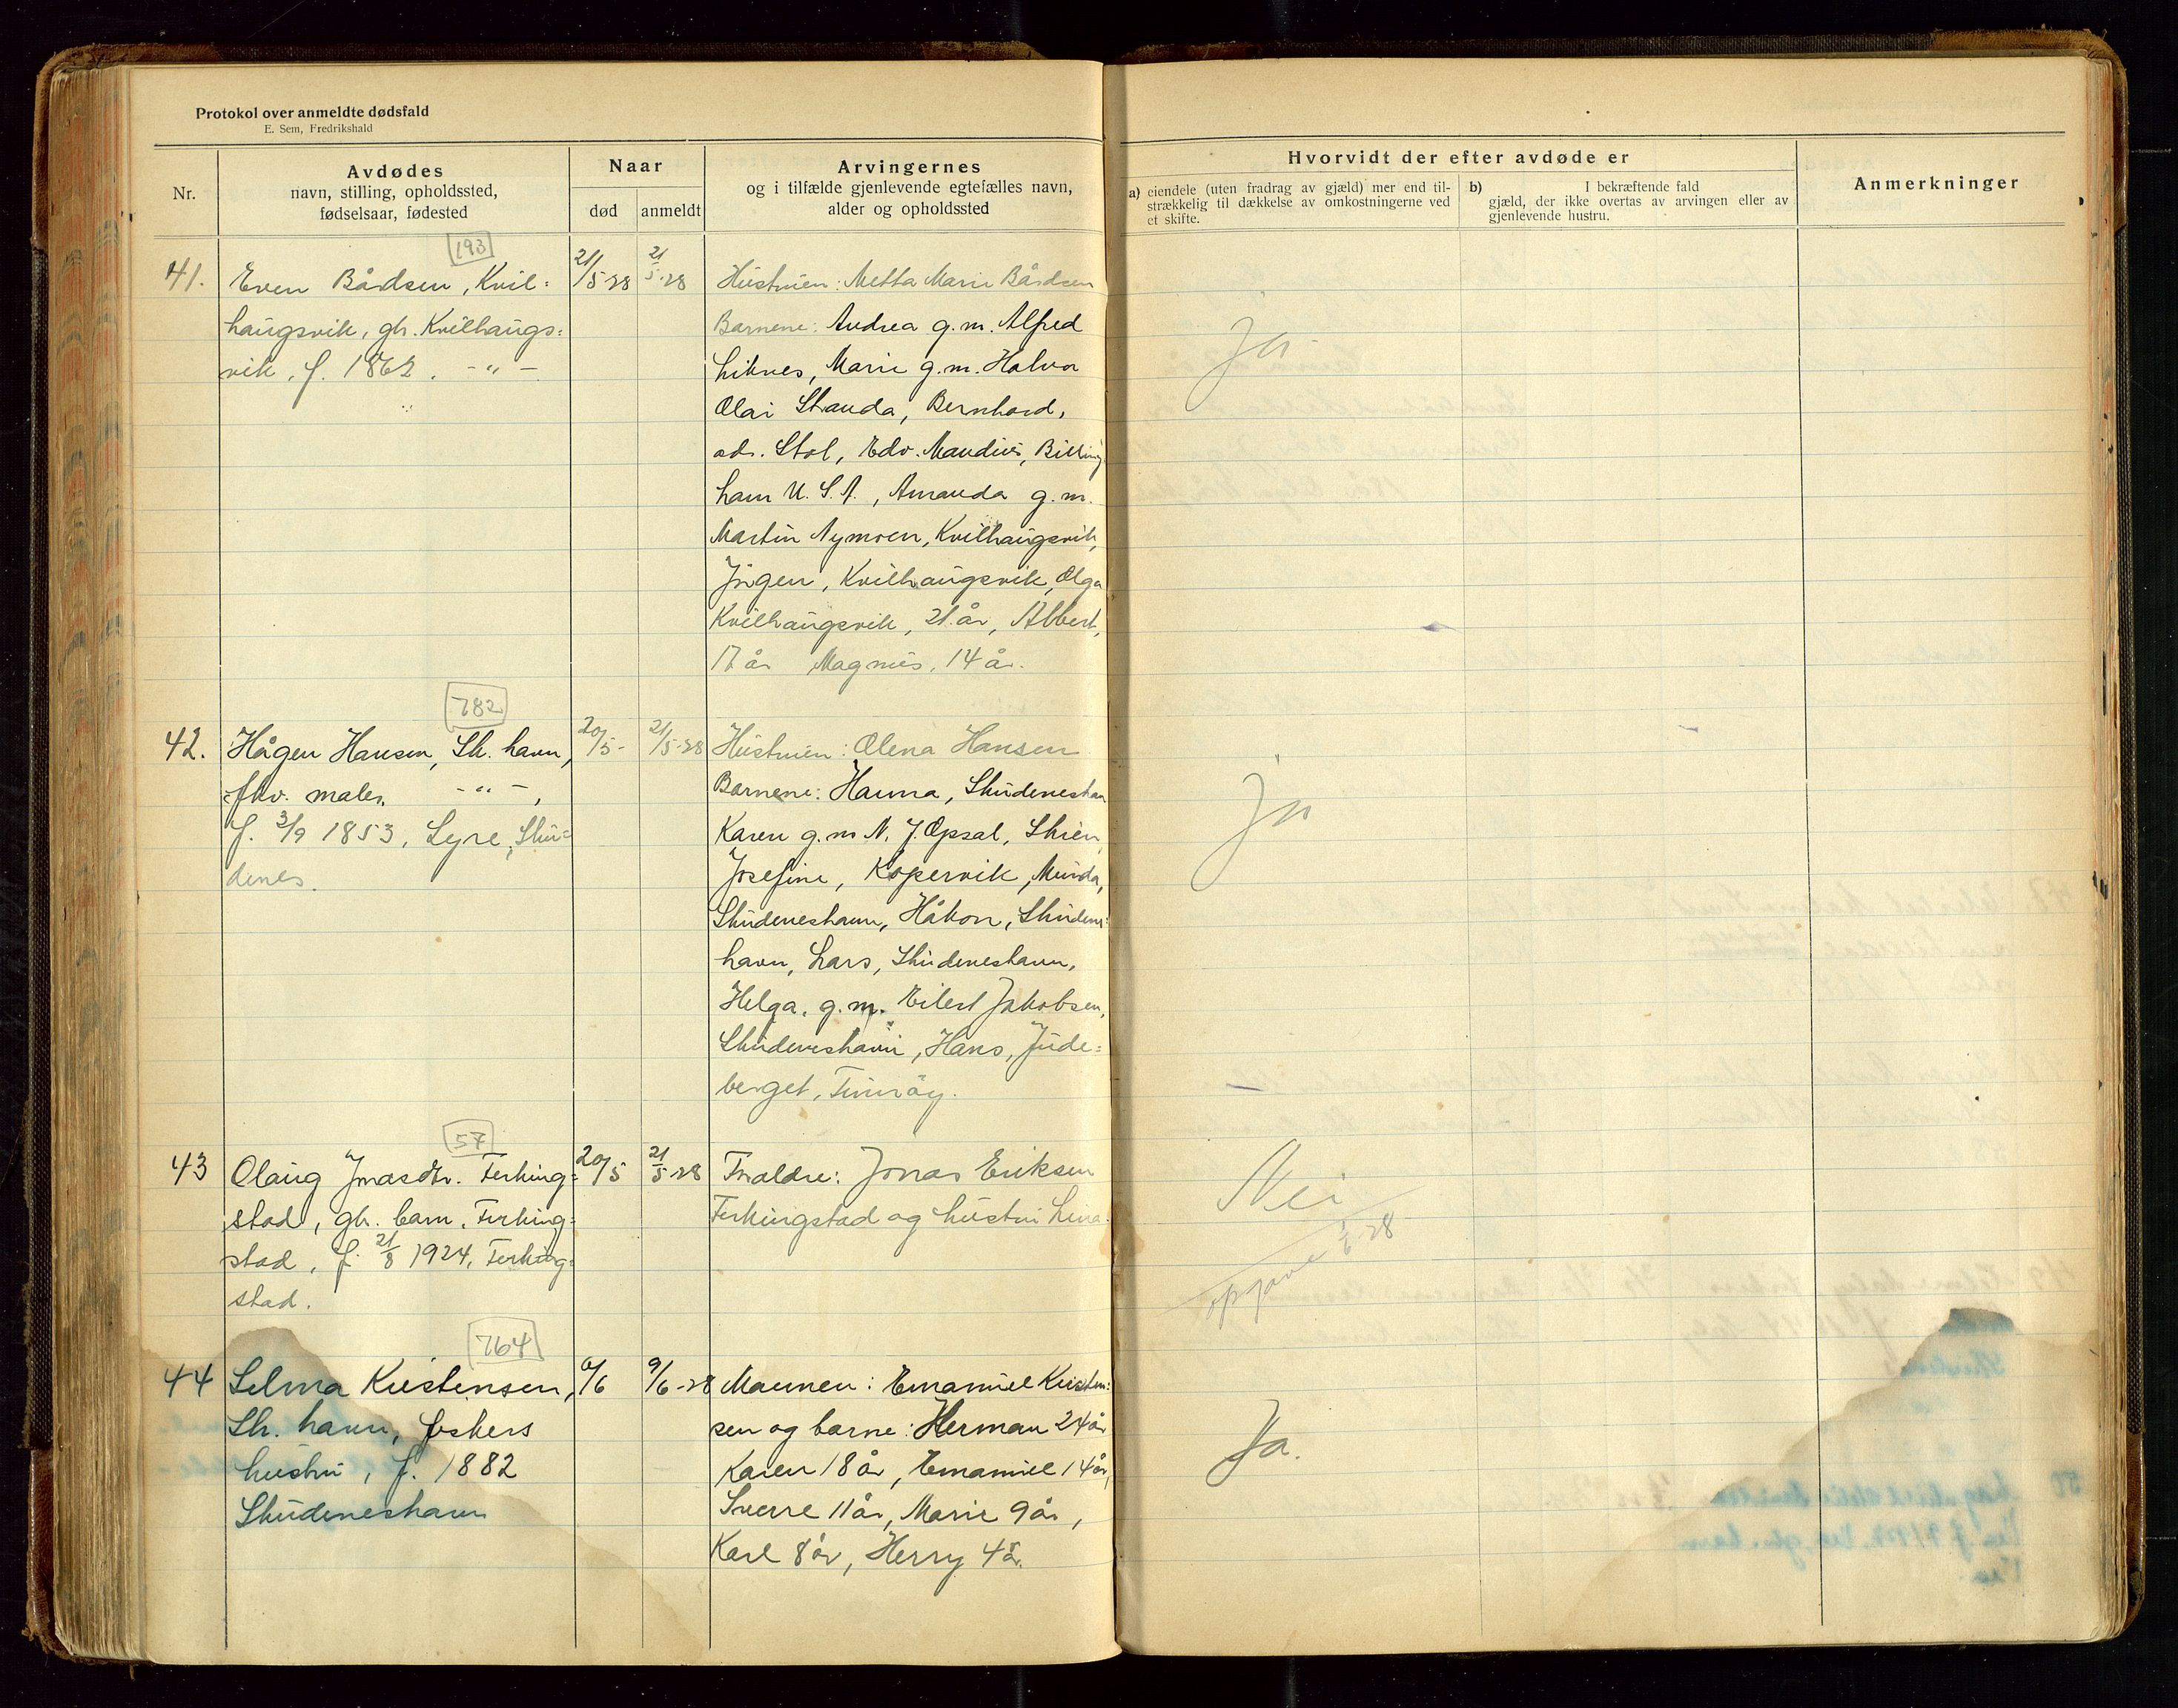 Protokol over anmeldte dødsfald
E. Sem, Fredrikshald
Nr.
Avdødes
navn, stilling, opholdssted,
fødselsaar, fødested
Naar
død
anmeldt
Arvingernes
og i tilfælde gjenlevende egtefælles navn,
alder og opholdssted
Hvorvidt der efter avdøde er
a) eiendele (uten fradrag av gjæld) mer end til-
strækkelig til dækkelse av omkostningerne ved
et skifte.
b) I bekræftende fald
gjæld, der ikke overtas av arvingen eller av
gjenlevende hustru.
Anmerkninger
193
41.
Even Bårdsen, Kvil=
haugsvik, gb. Kvilhaugs=
vik, f. 1862. -"-
21/5-28
21/5-28
Hustruen: Metta Marie Bårdsen
Barnene: Andrea g.m. Alfred
Liknes, Marie g.m. Halvor
Olai Stranda, Bernhard,
adr. Stol, Edv. Maudius, Billing
ham U.S.A., Amanda g.m.
Martin Nymoen, Kvilhaugsvik,
Jørgen, Kvilhaugsvik, Olga
Kvilhaugsvik, 21 år, Albert,
17 år Magnus, 14 år.
Ja
782
42.
Hågen Hansen, Sk. havn,
fhv. maler, -"-,
f. 3/9 1853, Syre, Sku=
denes.
20/5-
21/5-28
Hustruen: Olena Hansen
Barnene: Hanna, Skudeneshavn
Karen g.m N. J. Opsal, Skien,
Josefine, Kopervik, Munda,
Skudeneshavn, Håkon, Skudenes=
havn, Lars, Skudeneshavn,
Helga, g.m. Eilert Jakobsen,
Skudeneshavn, Hans, Jude=
berget, Finnøy.
Ja
57
43
Olaug Jonasdtr. Ferking=
stad, gb. barn, Ferking=
stad, f. 21/8 1924, Ferking=
stad.
20/5
21/5-28
Foraldre: Jonas Eriksen
Ferkingstad og hustru Lina.
Nei
opgave 1/6-28
764
44
Selma Kristensen,
Sk. havn, fiskers
hustru, f. 1882
Skudeneshavn
6/6
9/6-28
Mannen: Emanuel Kristen=
sen og barne: Herman 24 år
Karen 18 år, Emanuel 14 år,
Sverre 11 år, Marie 9 år,
Karl 8 år, Herry 4 år.
Ja.